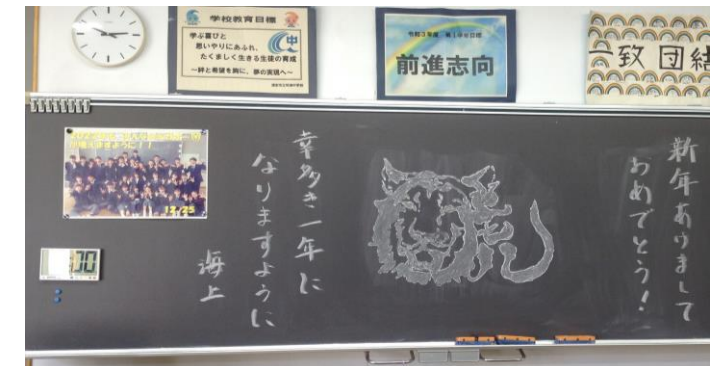 学校教育目標
学ぶ喜びと
思いやりにあふれ、
たくましく生きる生徒の育成
～絆と希望を胸に、夢の実現へ～
中
令和3年度 第1学年目標
前進志向
一致団結
新年あけまして
おめでとう!
虎
幸多き一年に
なりますように
海上
12/25
00